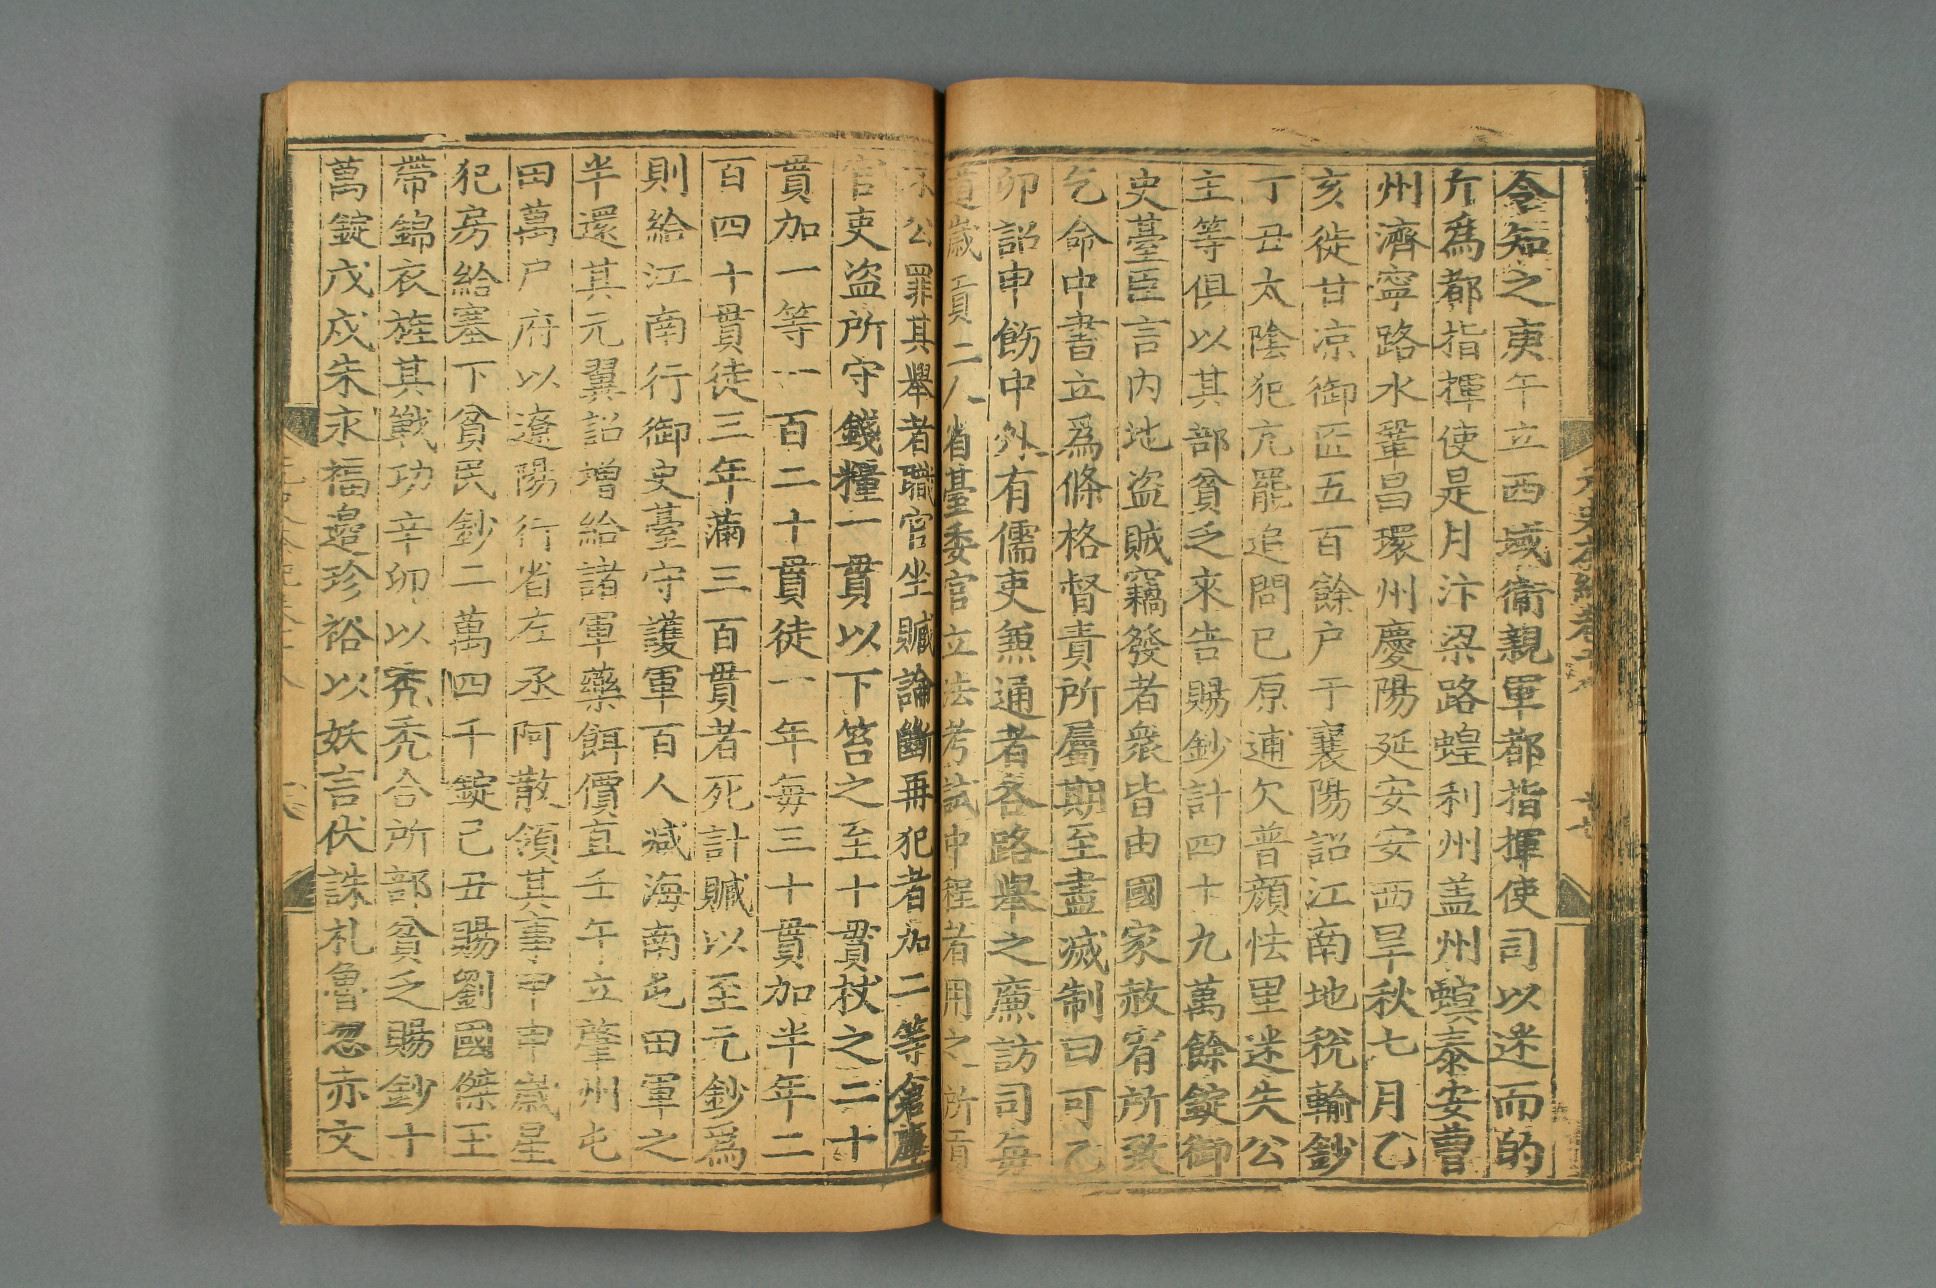 令知之庚午立西域衞親軍都指揮使司以迷而的
斤爲都指揮使是月汴梁路蝗利州盖州螟泰安曹
州濟寧路水鞏昌環州慶陽延安安西旱秋七月乙
亥徙甘凉御匠五百餘户于襄陽詔江南地稅輸鈔
丁丑太陰犯亢罷追問已原逋欠普顔怯里迷失公
主等俱以其部貧乏來告賜鈔計四十九萬餘錠御
史臺臣言内地盗賊竊發者衆皆由國家赦宥所致
乞命中書立爲條格督責所屬期至盡滅制曰可乙
卯詔申飭中外有儒吏兼通者各路舉之廉訪司每
道歲貢二人省臺委官立法考試中程者用之所貢
不公罪其舉者職官坐贓論斷再犯者加二等倉庫
官吏盗所守錢糧一貫以下笞之至十貫杖之二十
貫加一等一百二十貫徒一年每三十貫加半年二
百四十貫徒三年滿三百貫者死計贓以至元鈔爲
則給江南行御史臺守護軍百人减海南屯田軍之
半還其元翼詔增給諸軍藥餌價直壬午立肇州屯
田萬户府以遼陽行省左丞阿散領其事甲申歲星
犯房給塞下貧民鈔二萬四千錠己丑賜劉國傑玉
帶錦衣旌其戰功辛卯以禿禿合所部貧乏賜鈔十
萬錠戊戌朱永福邊珍裕以妖言伏誅札魯忽赤文
元史本紀卷十八
廿七